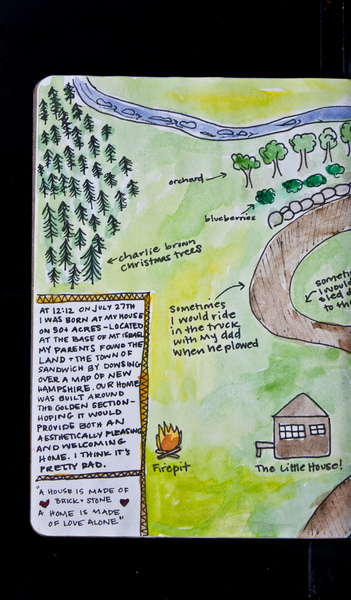 orchard
blueberries
charlie brown
christmas trees
Sometimes
I would ride
in the truck
with my dad
when he plowed
AT 12:12 ON JULY 27TH
I WAS BORN AT MY HOUSE
ON 90+ ACRES-LOCATED
AT THE BASE OF MT ISRAEL
MY PARENTS FOUND THE
LAND + THE TOWN OF
SANDWICH BY DOWSING
OVER A MAP OF NEW
HAMPSHIRE. OUR HOME
WAS BUILT AROUND
THE GOLDEN SECTION-
HOPING IT WOULD
PROVIDE BOTH AN
AESTHETICALLY PLEASING
AND WELCOMING
HOME. I THINK IT'S
PRETTY RAD.
"A HOUSE IS MADE OF
BRICK + STONE
A HOME IS MADE
OF LOVE ALONE"
Firepit
The Little House!
I would